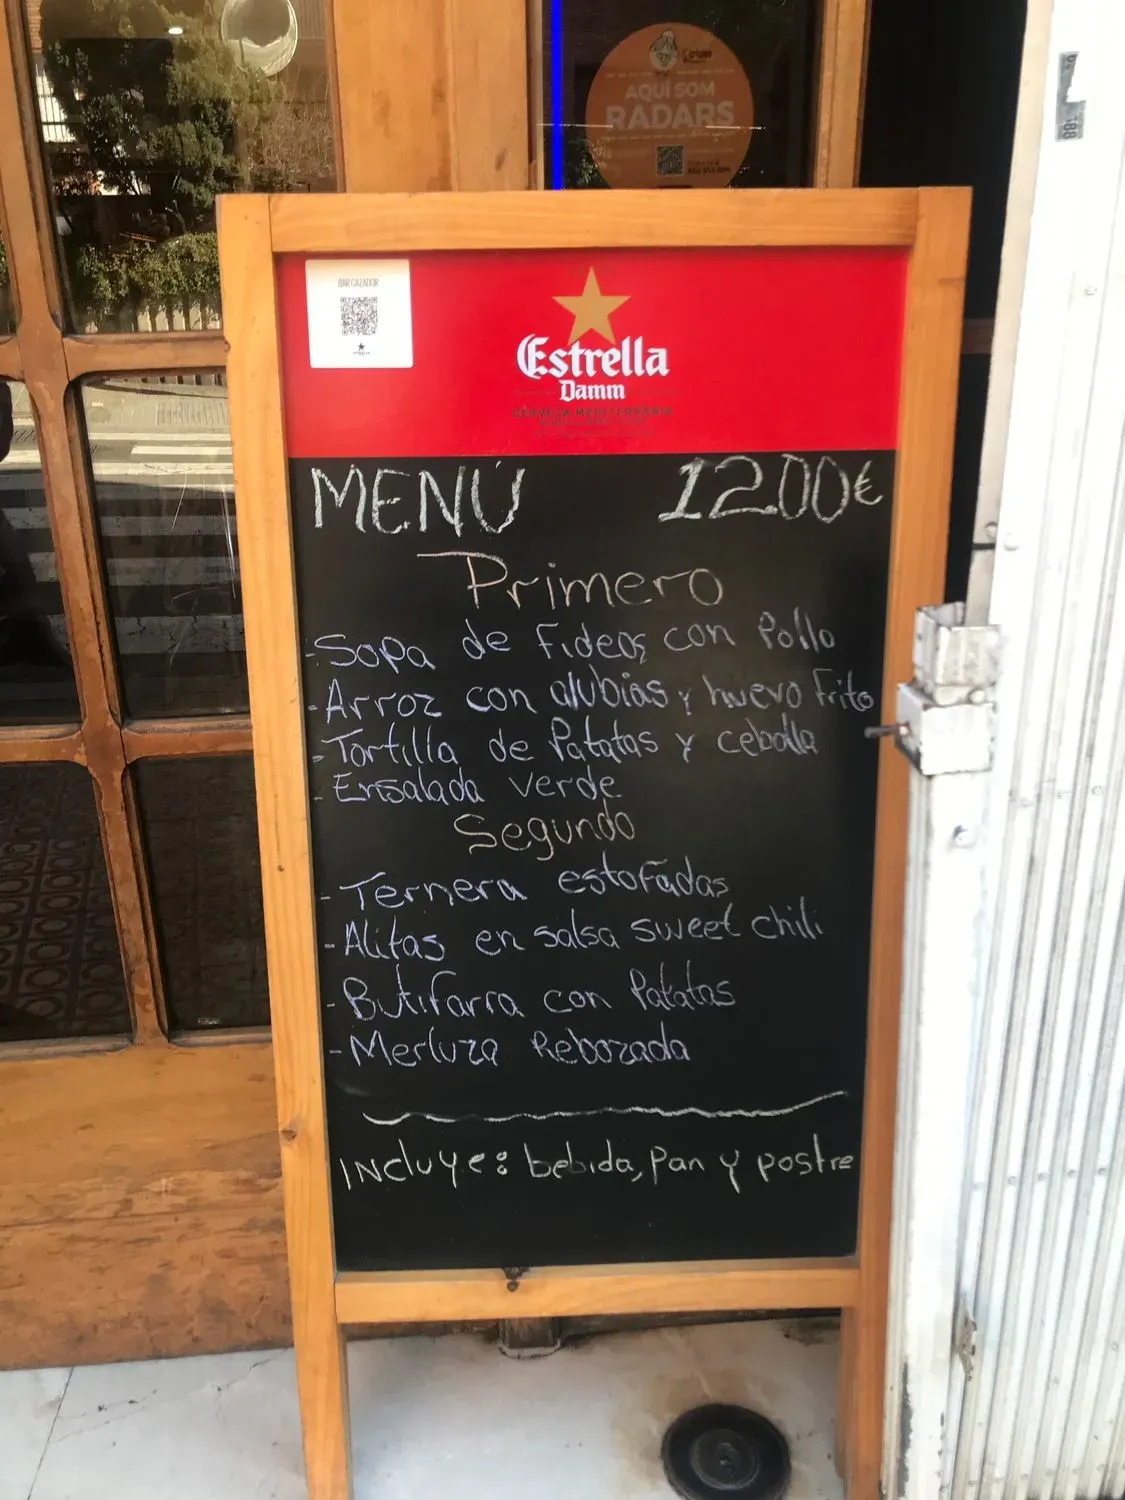 AQUÍ SOM
RADARS
BAR CAZADOR
Estrella
Damm
CERVEZA MEDITERRÁNEA
MENÚ 12.00€
Primero
- Sopa de Fideos con Pollo
- Arroz con alubias y huevo Frito
- Tortilla de Patatas y cebolla
- Ensalada verde
Segundo
- Ternera estofadas
- Alitas en salsa sweet chili
- Butifarra con Patatas
- Merluza Rebozada
Incluye: bebida, pan y postre